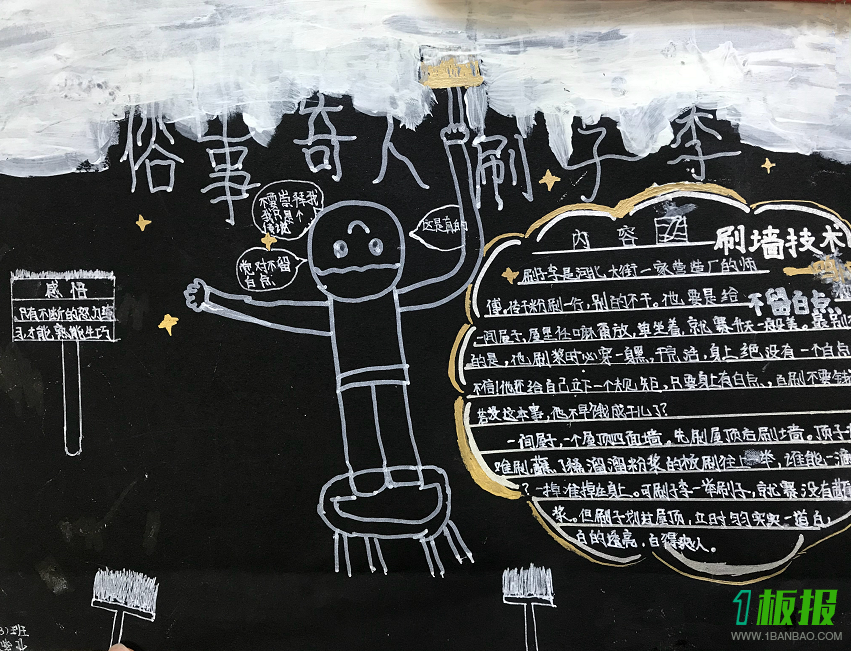 俗事奇人刷子李
不要崇拜我
我只是个
绝对不留
白点
这是真的
感悟
只有不断的努力练
习,才能熟能生巧
内容
刷墙技术
不留白点
刷子李是河北大街一家营造厂的师
傅,专干粉刷一行,别的不干。他,要是给
一间屋子,屋里任嘛甭放,单坐着,就赛升天一般美。最别
的是,他刷浆时必穿一身黑,干完活,身上绝没有一个白点
不信!他还给自己立下一个规矩,只要身上有白点,白刷不要钱
若没这本事,他不早饿成干儿了?
一间屋子,一个屋顶四面墙。先刷屋顶后刷墙。顶子
难刷,蘸了稀溜溜粉浆的板刷往上一举,谁能一滴
?一掉准掉在身上。可刷子李一举刷子,就赛没有蘸
浆。但刷子划过屋顶,立时匀匀实实一道白,
白的透亮,白得爽人。
3)班
1板报
WWW.1BANBAO.COM